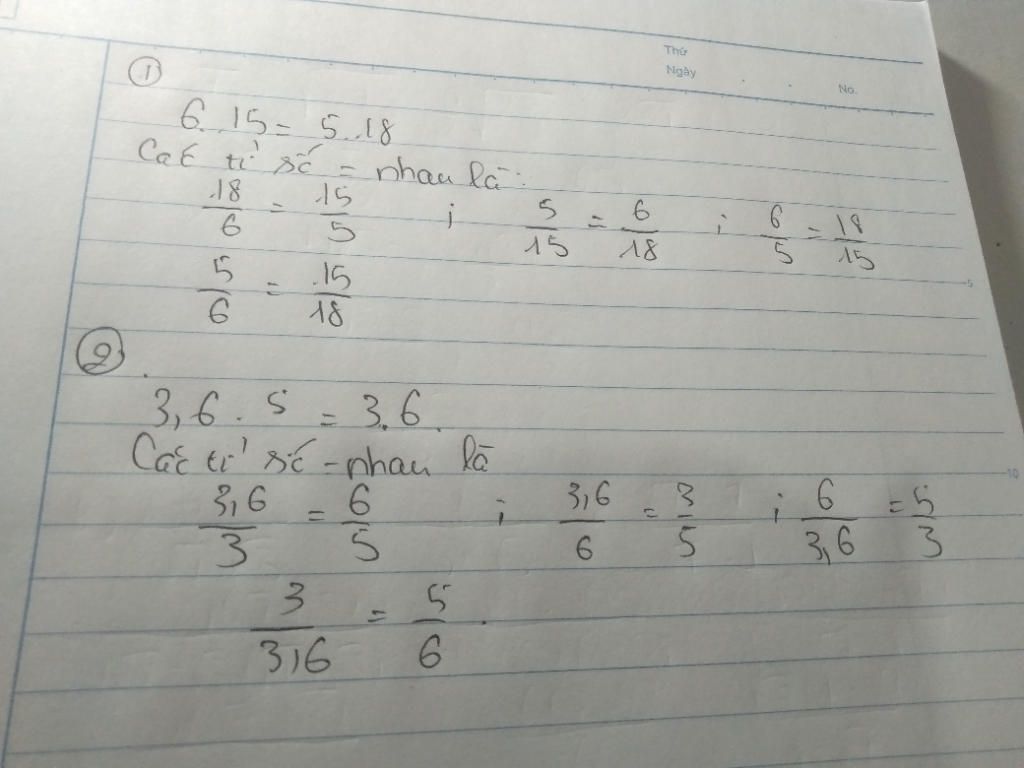 Thứ
Ngày
No.
①
6. 15 = 5. 18
Các tỉ số = nhau là:
18/6 = 15/5 ; 5/15 = 6/18 ; 6/5 = 18/15
5/6 = 15/18
5
②.
3,6 . 5 = 3.6.
Các tỉ số = nhau là
10
3,6/3 = 6/5 ; 3,6/6 = 3/5 ; 6/3,6 = 5/3
3/3,6 = 5/6.